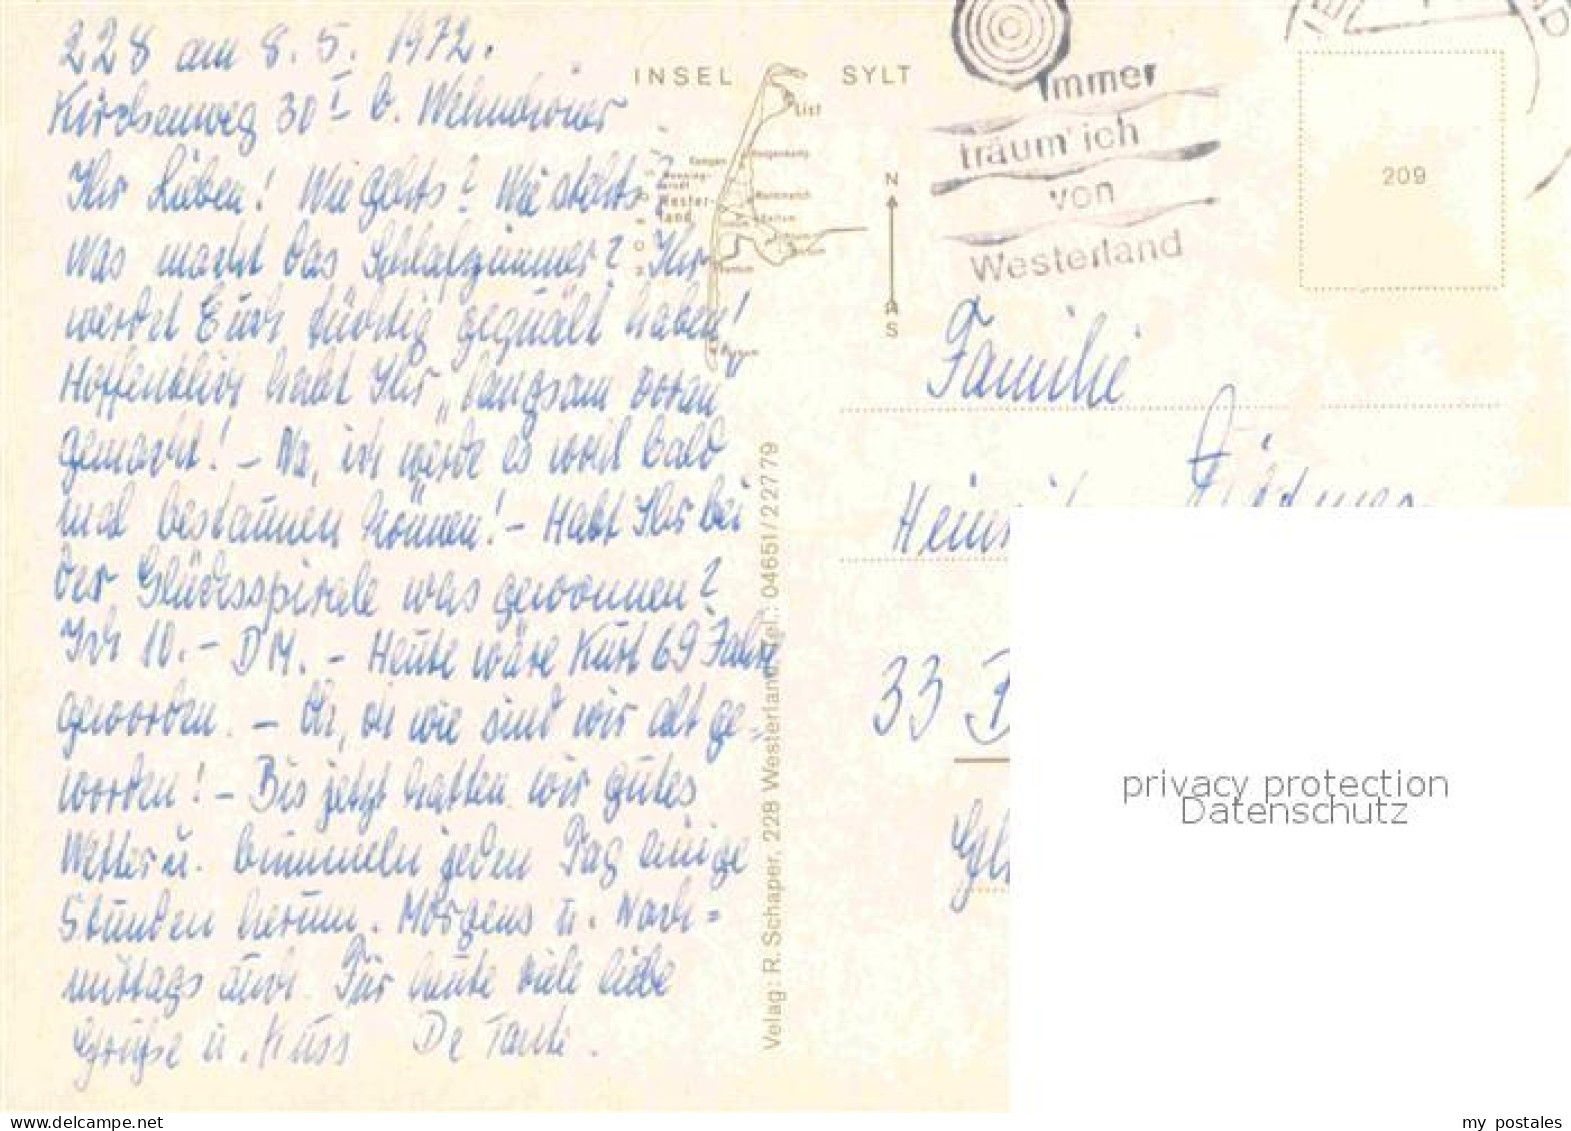 228 am 8. 5. 1972.
Kirchenweg 30 I b.
Ihr Lieben! Wie gehts? Wie stehts?
Was macht das Schlafzimmer? Ihr
werdet Euch tüchtig gequält haben!
Hoffentlich habt Ihr „langsam voran
gemacht! – Na, ich werde es wohl bald
mal bestaunen können! – Habt Ihr bei
der Glücksspirale was gewonnen?
Ich 10.– DM. – Heute wäre Kurt 69 Jahre
geworden. – Oh, oh wie sind wir alt ge=
worden! – Bis jetzt hatten wir gutes
Wetter u. bummeln jeden Tag einige
Stunden herum. Morgens u. Nach=
mittags auch. Für heute viele liebe
Grüße u. Kuss De Tante.
INSEL SYLT
List
Kampen
Wester-
land
Keitum
N
S
Velag: R. Schaper, 228 Westerland, Tel.: 04651/22779
Immer
träum' ich
von
Westerland
209
Familie
33
privacy protection
Datenschutz
my postales